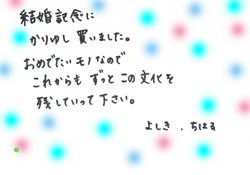 結婚記念に
かりゆし買いました。
おめでたいモノなので
これからもずっとこの文化を
残していって下さい。
よしき、ちはる